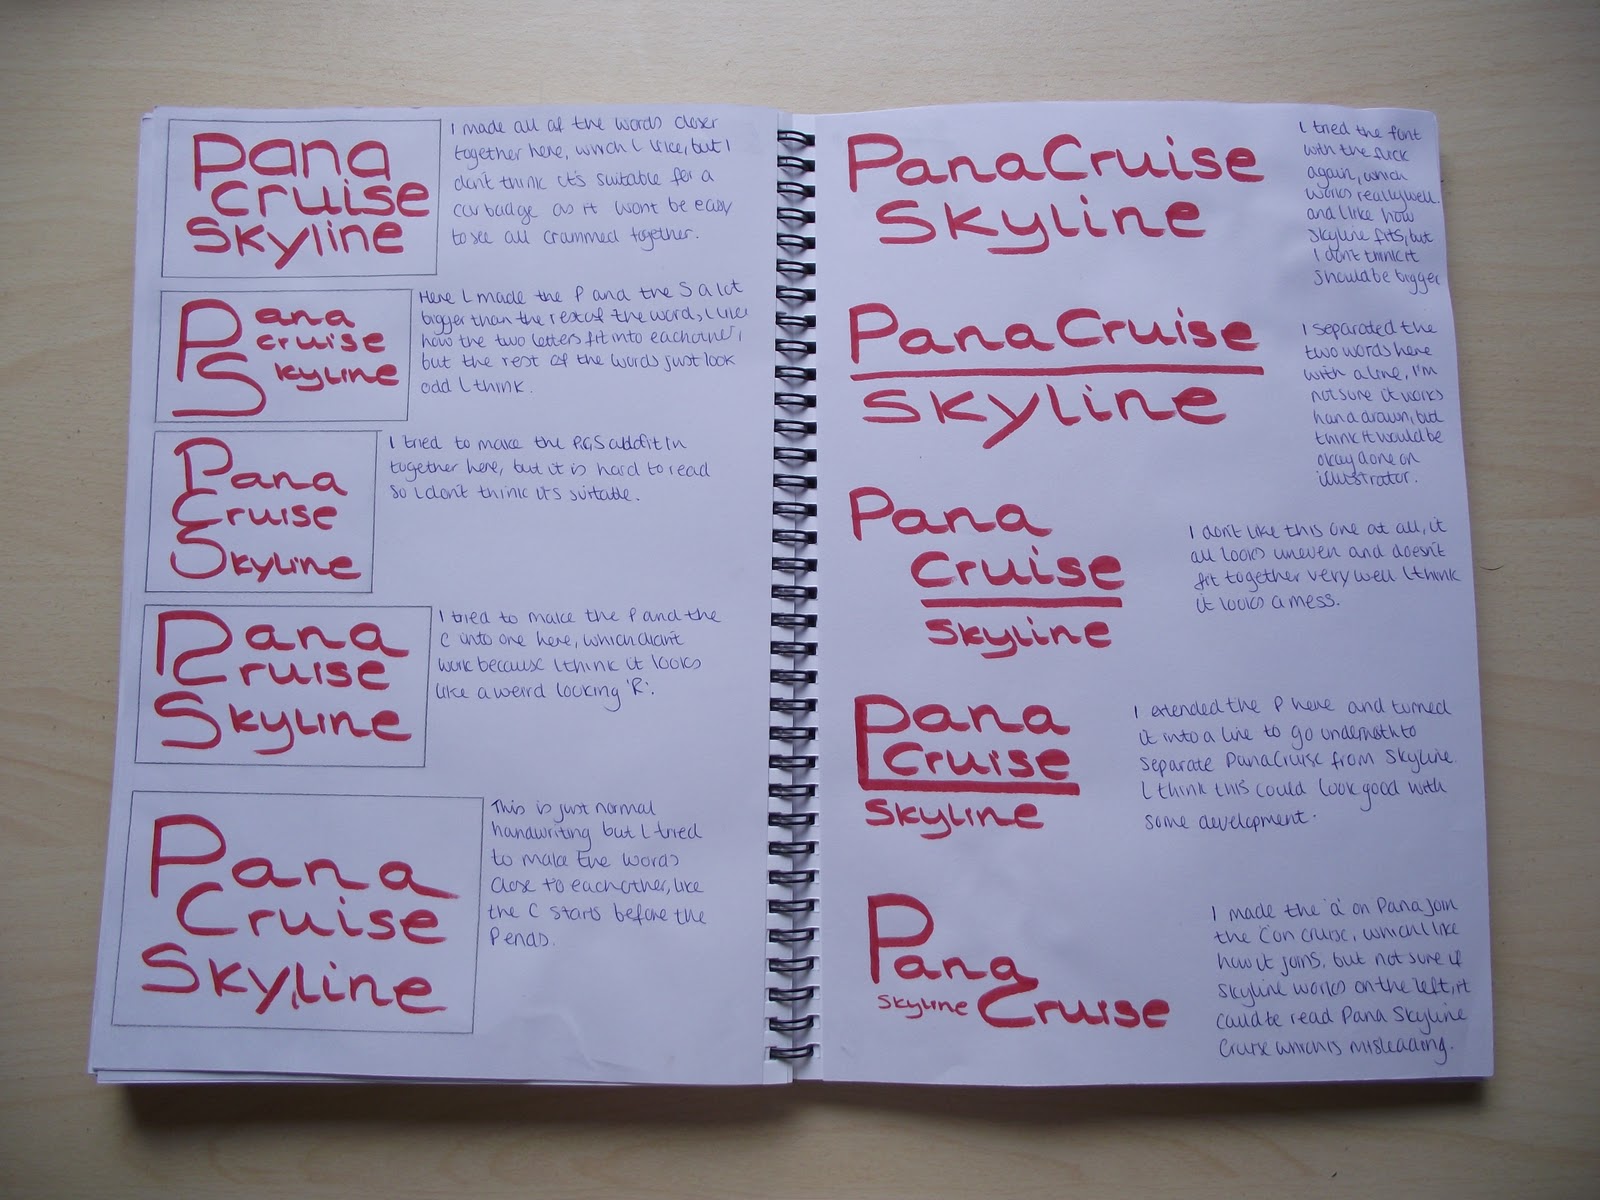 Pana
Cruise
Skyline
I made all of the words closer
together here, which I like, but I
don't think it's suitable for a
car badge as it wont be easy
to see all crammed together.
Pana
cruise
Skyline
Here I made the P and the S a lot
bigger than the rest of the word, I like
how the two letters fit into eachother,
but the rest of the words just look
odd I think.
Pana
Cruise
Skyline
I tried to make the P,C,S all fit in
together here, but it is hard to read
so I don't think it's suitable.
Pana
Cruise
Skyline
I tried to make the P and the
C into one here, which didn't
work because I think it looks
like a weird looking 'R'.
Pana
Cruise
Skyline
This is just normal
handwriting but I tried
to make the words
close to eachother, like
the C starts before the
P ends.
PanaCruise
Skyline
I tried the font
with the flick
again, which
works really well.
and I like how
Skyline fits, but
I don't think it
should be bigger
PanaCruise
Skyline
I separated the
two words here
with a line, I'm
not sure it works
hand drawn, but
think it would be
okay done on
illustrator.
Pana
Cruise
Skyline
I don't like this one at all, it
all looks uneven and doesn't
fit together very well I think
it looks a mess.
Pana
Cruise
Skyline
I extended the P here and turned
it into a line to go underneath to
separate PanaCruise from Skyline.
I think this could look good with
some development.
Pana
Skyline Cruise
I made the 'a' on Pana join
the 'C' on cruise, which I like
how it joins, but not sure if
Skyline works on the left, it
could be read Pana Skyline
Cruise which is misleading.